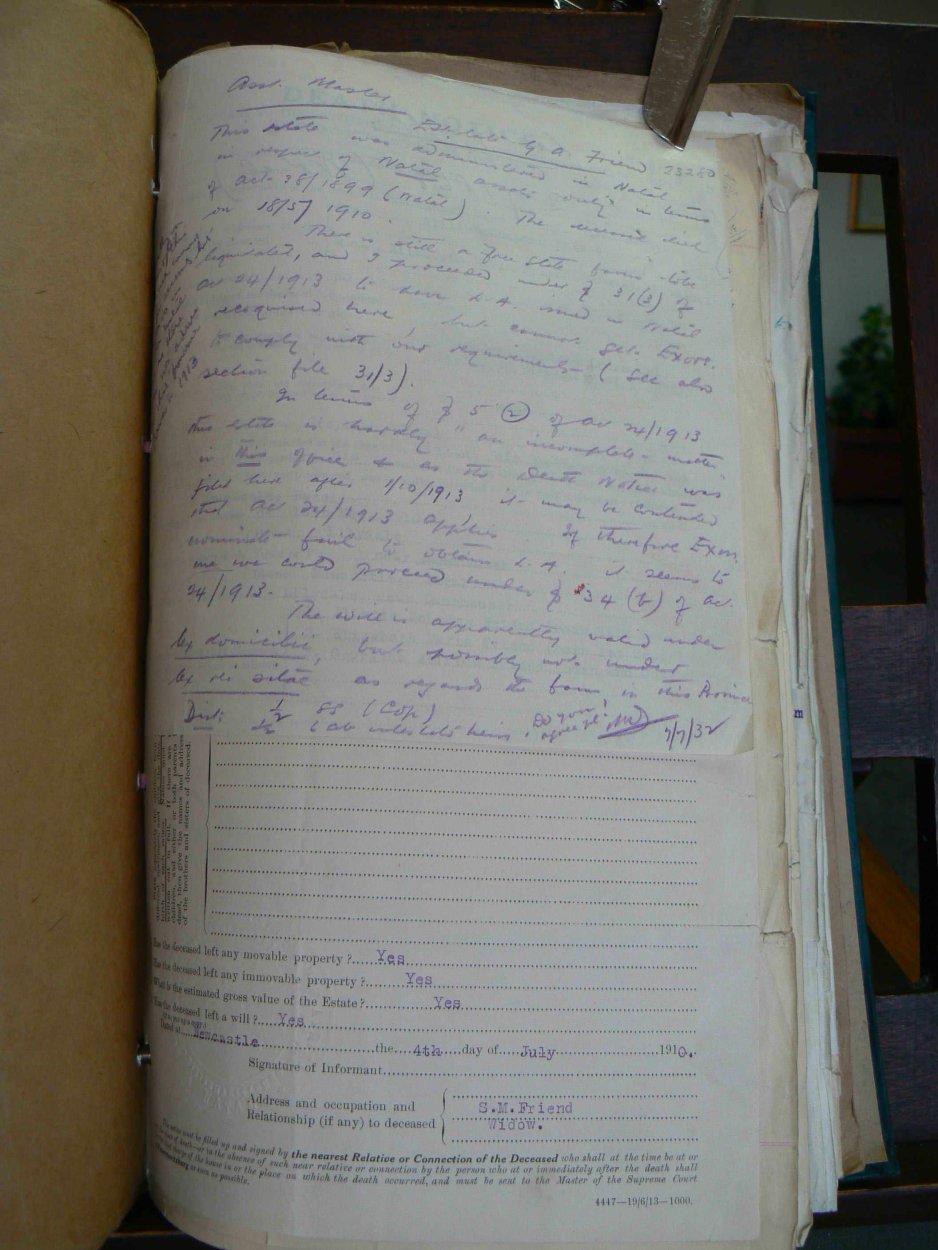 Asst. Master
Est. late G. A. Friend 23280
This estate was administered in Natal
in respect of Natal assets only in terms
of Act 38/1899 (Natal). The deceased died
on 18/5/1910.
There is still a Free State farm to be
liquidated, and I proceeded under § 31(3) of
Act 24/1913 to have L.A. issued in Natal
recognised here, but cannot get Exors.
to comply with our requirements (See also
section file 31/3).
In terms of § 5 (2) of Act 24/1913
this estate is hardly "an incomplete matter"
in this office & as the Death Notice was
filed here after 1/10/1913 it may be contended
that Act 24/1913 applies. If therefore Exors.
nominate fail to obtain L.A. it seems to
me we could proceed under § 34 (b) of Act
24/1913.
The will is apparently valid under
lex domicilii, but possibly not under
lex rei sitae as regards the form in this Province
Dist: ½ SS (Cop)
½ (ab intestate heirs.
Do you
agree pl.
7/7/32
1913
of the brothers and sisters of deceased.
Has the deceased left any movable property ? Yes
Has the deceased left any immovable property ? Yes
What is the estimated gross value of the Estate ? Yes
Has the deceased left a will ? Yes
Dated at Newcastle the 4th day of July 1910.
Signature of Informant
Address and occupation and
Relationship (if any) to deceased
S.M.Friend
Widow.
filled up and signed by the nearest Relative or Connection of the Deceased who shall at the time be at or
in the absence of such near relative or connection by the person who at or immediately after the death shall
charge of the house in or the place on which the death occurred, and must be sent to the Master of the Supreme Court
as soon as possible.
4447—19/6/13—1000.